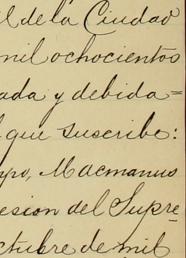 l de la Ciudad
mil ochocientos
ada y debida=
l que suscribe:
mpo, Macmanus
esion del Supre
ctubre de mil